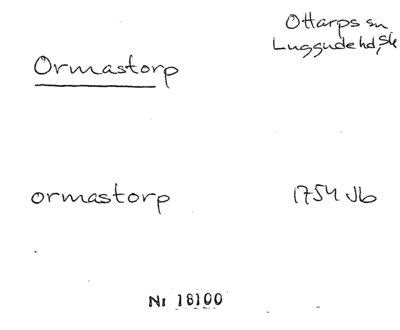 Ottarps sn
Luggude hd, Sk
Ormastorp
ormastorp 1754 Jb
Nr 18100